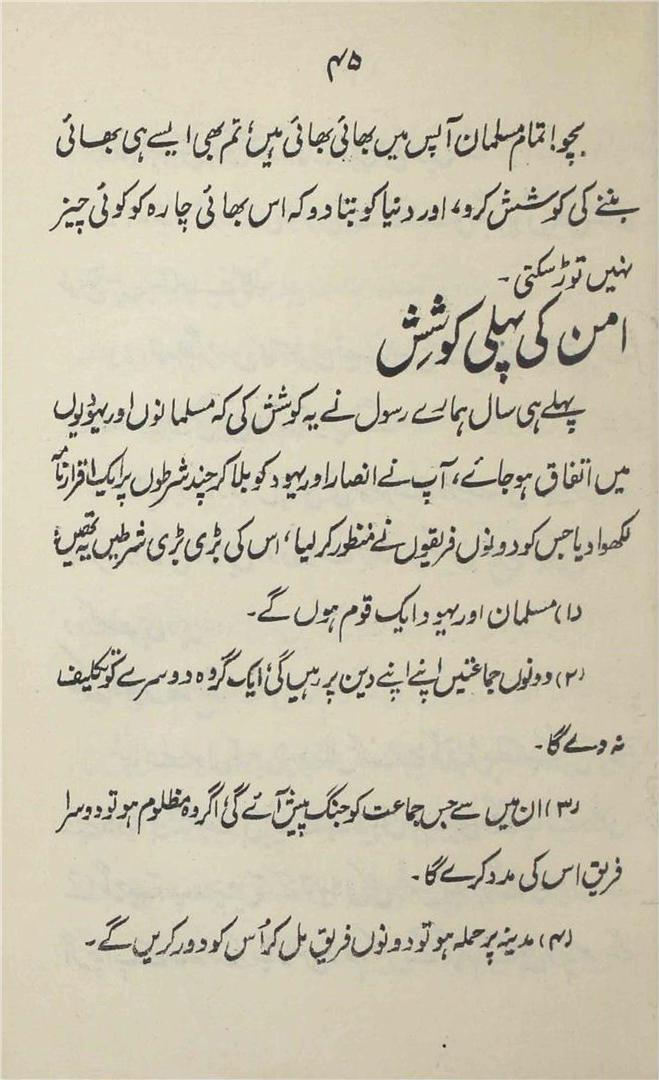 ۴۵
بچو! تمام مسلمان آپس میں بھائی بھائی ہیں، تم بھی ایسے ہی بھائی
بننے کی کوشش کرو، اور دنیا کو بتا دو کہ اس بھائی چارہ کو کوئی چیز
نہیں توڑ سکتی۔
امن کی پہلی کوشِش
پہلے ہی سال ہمارے رسول نے یہ کوشش کی کہ مسلمانوں اور یہودیوں
میں اتفاق ہو جائے، آپ نے انصار اور یہود کو بلا کر چند شرطوں پر ایک اقرار نامہ
لکھوا دیا جس کو دونوں فریقوں نے منظور کر لیا، اس کی بڑی بڑی شرطیں یہ تھیں؛
(۱) مسلمان اور یہود ایک قوم ہوں گے۔
(۲) دونوں جماعتیں اپنے اپنے دین پر رہیں گی، ایک گروہ دوسرے کو تکلیف
نہ دے گا۔
(۳) ان میں سے جس جماعت کو جنگ پیش آئے گی، اگر وہ مظلوم ہو تو دوسرا
فریق اس کی مدد کرے گا۔
(۴) مدینہ پر حملہ ہو تو دونوں فریق مل کر اُس کو دور کریں گے۔